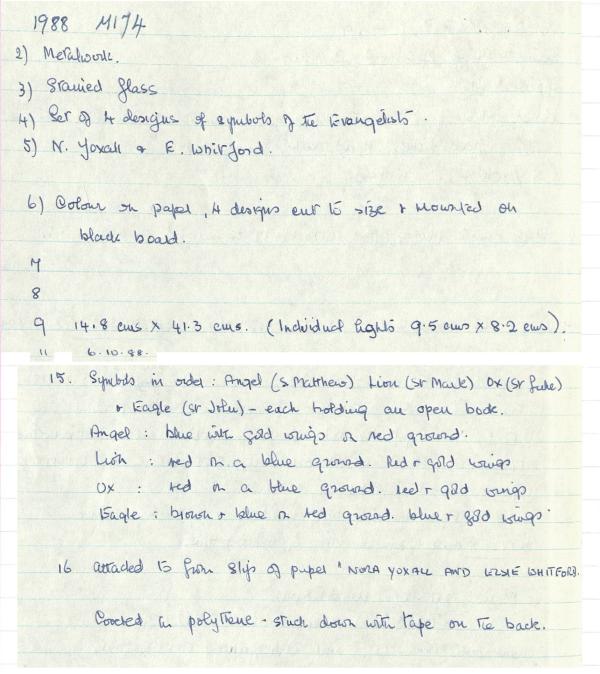 1988 M174
2) Metalwork.
3) Stained Glass
4) Set of 4 designs of symbols of the Evangelists.
5) N. Yoxall & E. Whitford.
6) Colour on paper, 4 designs cut to size & mounted on
black board.
7
8
9 14.8 cms x 41.3 cms. (Individual lights 9.5 cms x 8.2 cms).
11 6.10.88.
15. Symbols in order: Angel (S Matthew) Lion (St Mark) Ox (St Luke)
& Eagle (St John) - each holding an open book.
Angel : blue with gold wings on red ground.
Lion : red on a blue ground. Red & gold wings
Ox : red on a blue ground. red & gold wings
Eagle : brown & blue on red ground. blue & gold wings.
16 attached to front slip of paper "NORA YOXALL AND ELSIE WHITFORD.
Covered in polythene - stuck down with tape on the back.